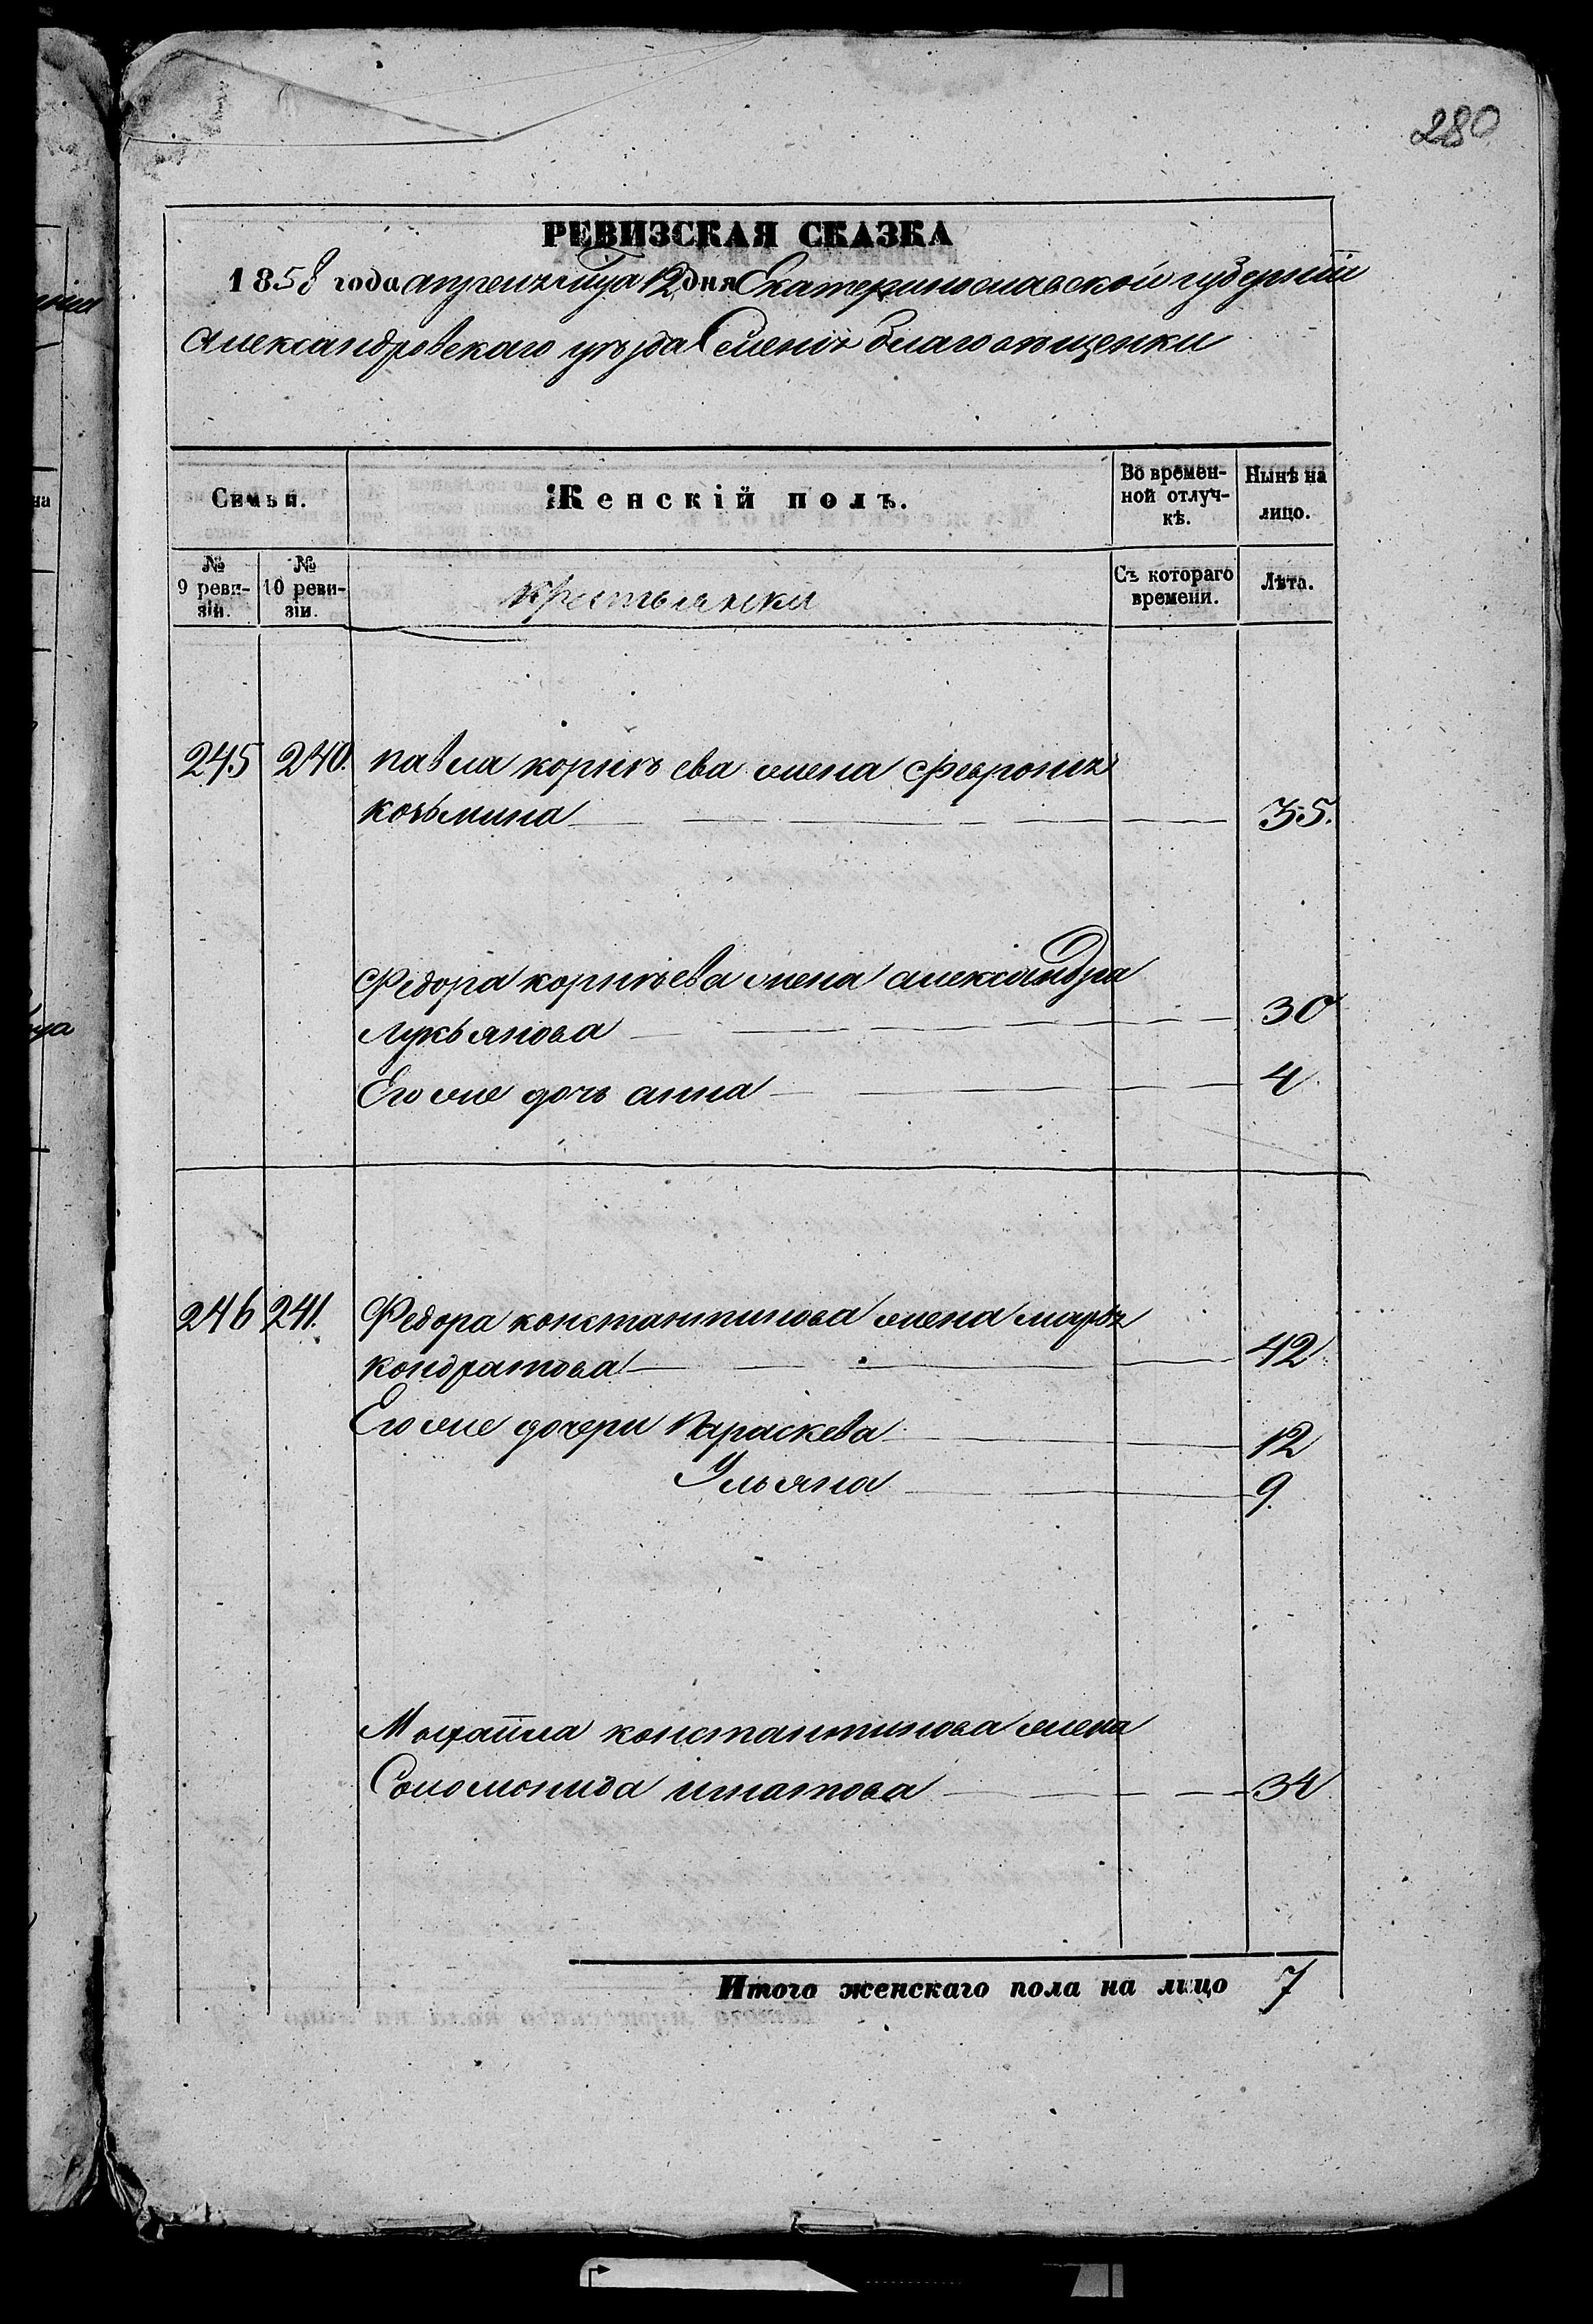 280
РЕВИЗСКАЯ СКАЗКА
1858 года апреля мца 12 дня Екатеринославской губернiи
Александровскаго уезда Селенiя благовещенки
Семьи.
Женскій полъ.
Во времен-
ной отлуч-
кѣ.
Нынѣ на
лицо.
№
9 реви-
зіи.
№
10 реви-
зіи.
крестьянки
Съ котораго
времени.
Лѣта.
245 240. павла корнѣева жена Февронiя
козьмина 35.
Федора корнѣева жена александра
лукьянова 30
Его же дочь анна 4
246 241. Федора константинова жена марья
кондратова 42
Его же дочери Параскева 12
Ульяна 9.
Михаила константинова жена
Соломонида игнатова 34
Итого женскаго пола на лицо 7